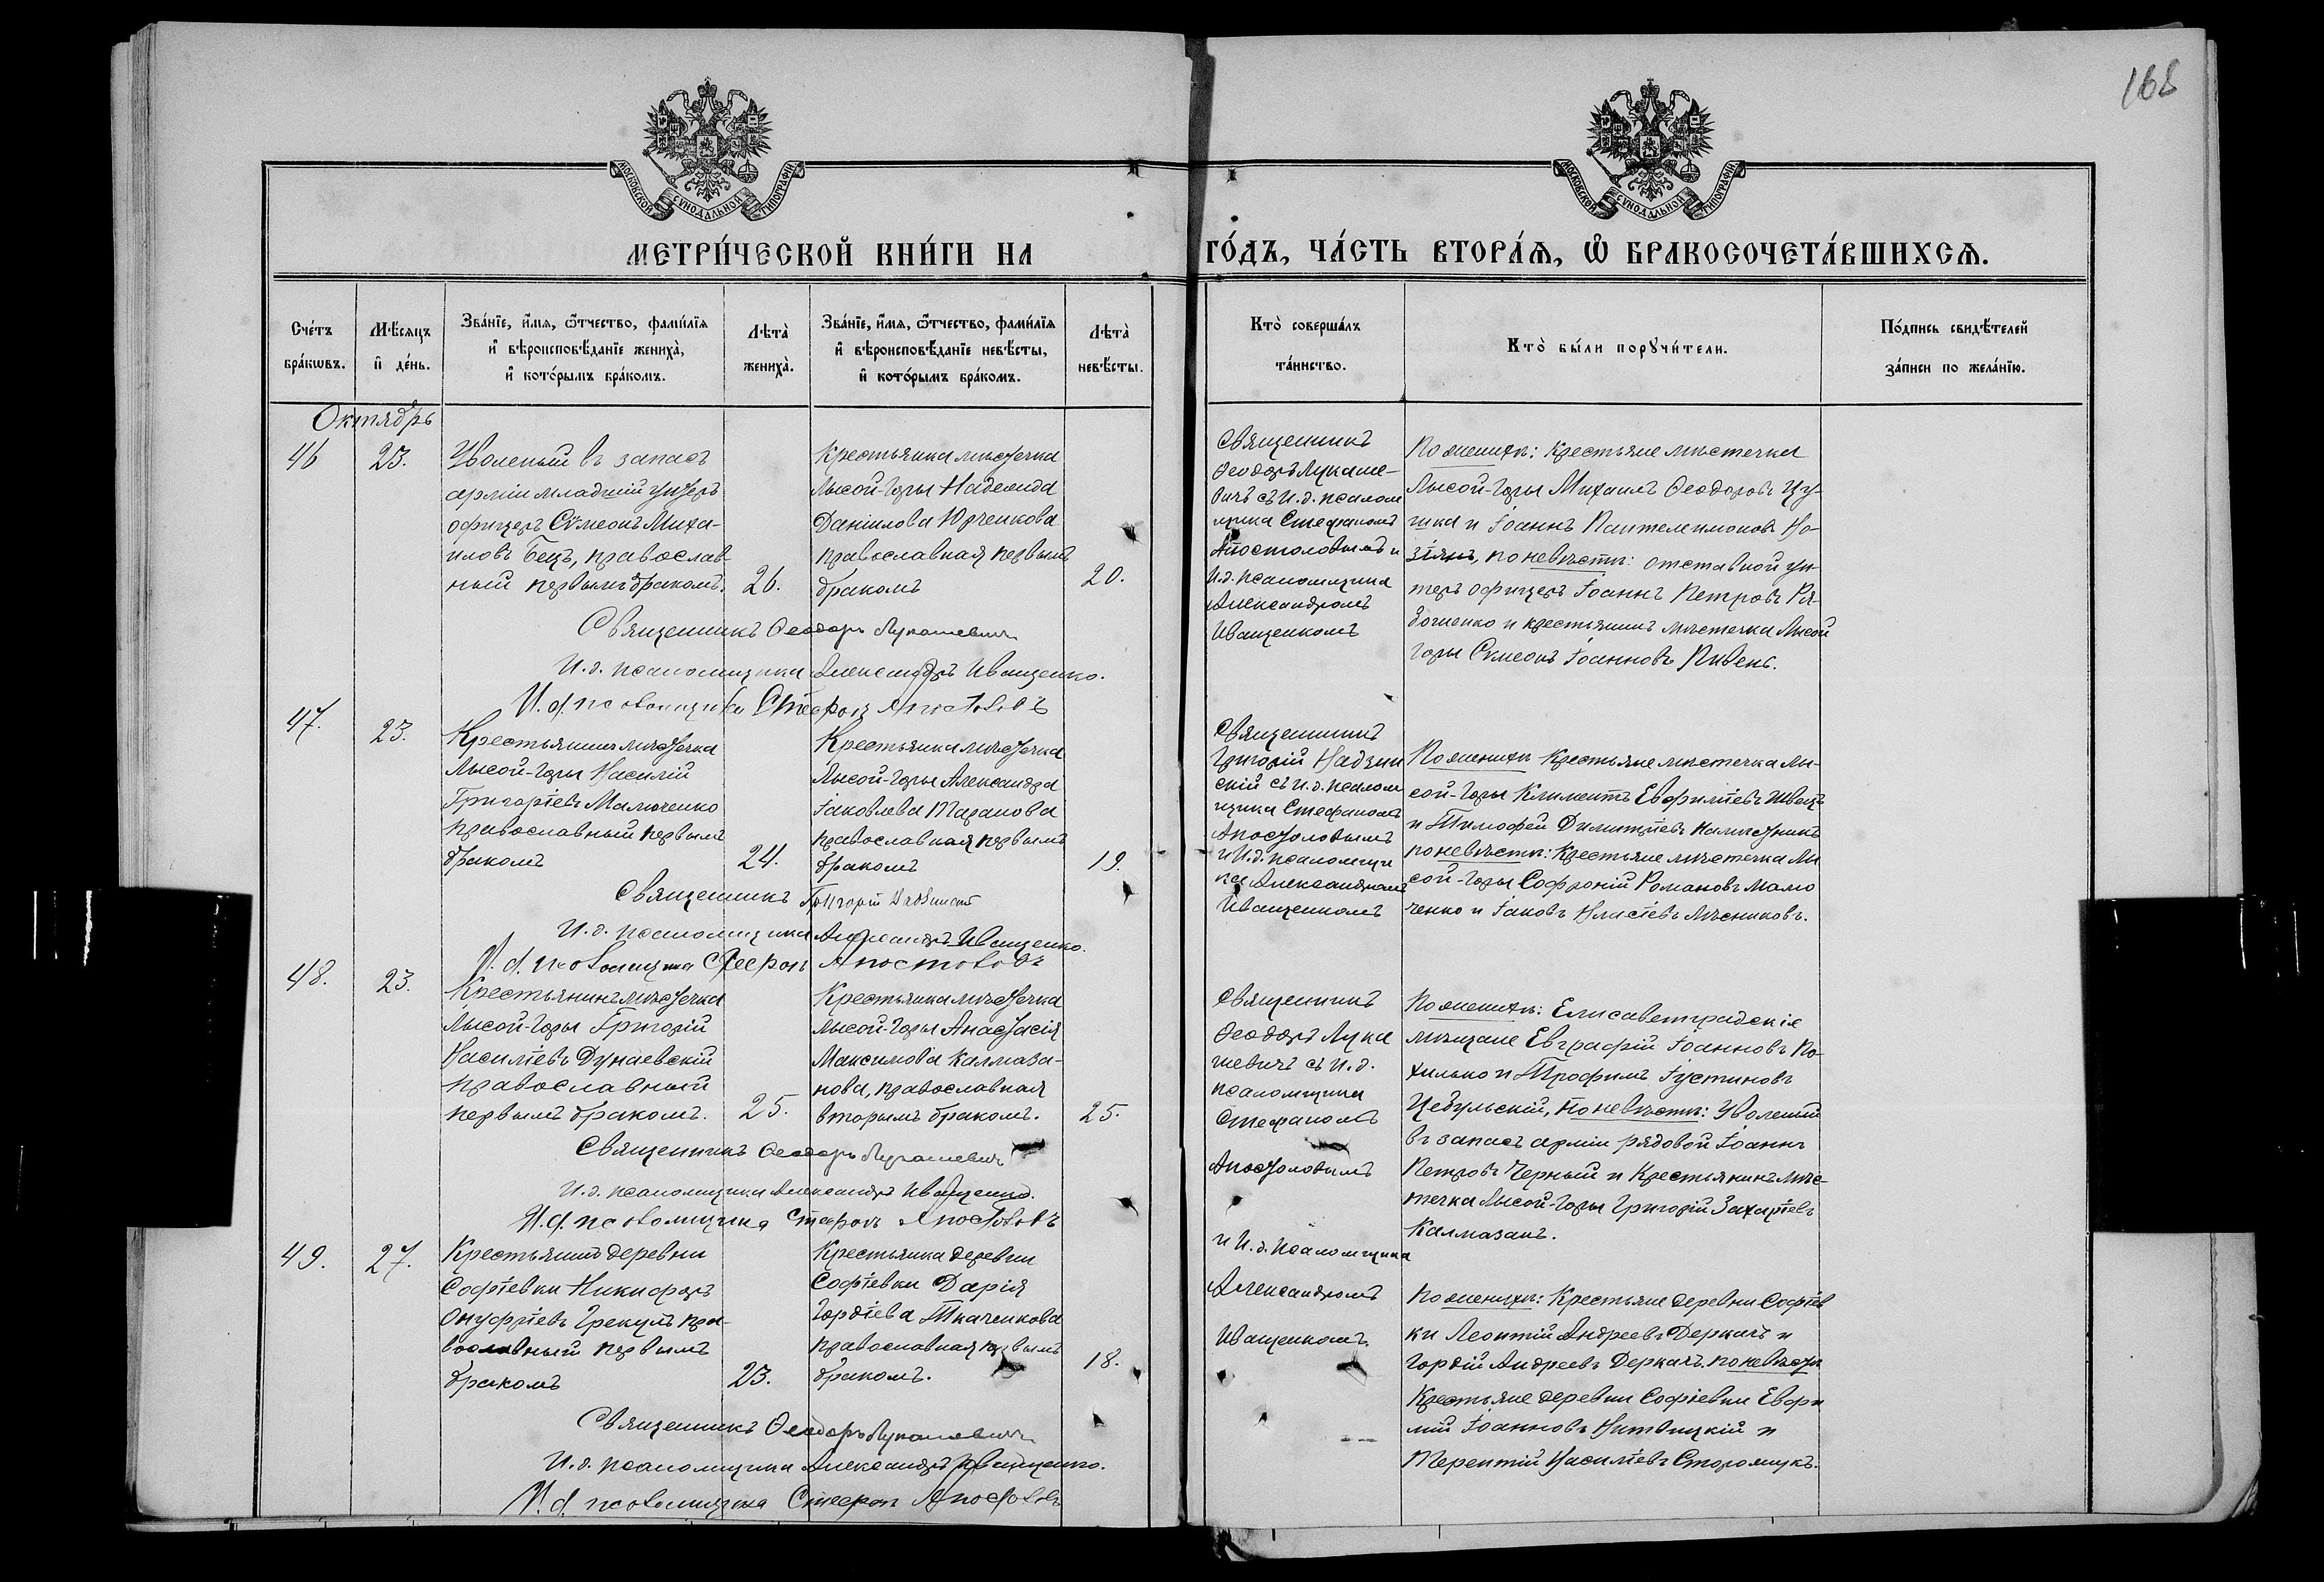 168
МОСКОВСКОЙ СѴНОДАЛЬНОЙ ТИПОГРАФІИ
МОСКОВСКОЙ СѴНОДАЛЬНОЙ ТИПОГРАФІИ
МЕТРИ́ЧЕСКОЙ КНИ́ГИ НА
ГО́ДЪ, ЧА́СТЬ ВТОРА́Ѧ, Ѽ БРАКОСОЧЕТА́ВШИХСѦ.
Счéтъ
брáкѡвъ.
Мѣ́сяцъ
и҆ дéнь.
Звáнїе, и҆́мѧ, ѻ҆́тчество, фамѝлїѧ
и҆ вѣроисповѣ́данїе женихà,
и҆ котóрымъ брáкомъ.
Лѣтà
женихà.
Звáнїе, и҆́мѧ, ѻ҆́тчество, фамѝлїѧ
и҆ вѣроисповѣ́данїе невѣ́сты,
и҆ котóрымъ брáкомъ.
Лѣтà
невѣ́сты.
Ктò совершáлъ
тáинство.
Ктò бы́ли порꙋчи́тели.
Пóдпись свидѣ́телей
зáписи по желáнїю.
Октябрь
46
23.
Уволеный въ запасъ
арміи младшій унтеръ
офицеръ Сѵмеонъ Миха-
иловъ Бецъ, православ-
ный первымъ бракомъ.
26.
Крестьянка мѣстечка
Лысой-Горы Надежда
Даніилова Юрченкова
православная первымъ
бракомъ
20.
Священникъ
Ѳеодоръ Лукаше-
вичъ съ И.д. псалом
щика Стефаномъ
Апостоловымъ и
И.д. псаломщика
Александромъ
Иващенкомъ
По женихѣ: Крестьяне мѣстечка
Лысой-Горы Михаилъ Ѳеодоровъ Цу-
ика и Іоаннъ Пантелеимоновъ Но-
, по невѣстѣ: отставной ун-
теръ офицеръ Іоаннъ Петровъ Ря-
бошенко и крестьянинъ мѣстечка Лысой
Горы Сѵмеонъ Іоанновъ Пивень.
Священникъ Ѳеодоръ Лукашевичъ
И.д. псаломщика Александръ Иващенко.
И.д. псаломщика Стефанъ Апостоловъ
47.
23.
Крестьянинъ мѣстечка
Лысой-Горы Василій
Григоріевъ Малюченко
православный первымъ
бракомъ
24.
Крестьянка мѣстечка
Лысой-Горы Александра
Іаковлева Таранова
православная первымъ
бракомъ
19.
Священникъ
Григорій Надзин
скій съ И.д. псалом
щика Стефаномъ
Апостоловымъ
и И.д. псаломщи
ка Александромъ
Иващенкомъ
По женихѣ Крестьяне мѣстечка Лы-
сой-Горы Климентъ Евфиміевъ Швецъ
и Тимофей Димитріевъ
по невѣстѣ: Крестьяне мѣстечка Лы
сой-Горы Софроній Романовъ Малю
ченко и Іаковъ Иліевъ Мѣсниковъ.
Священникъ Григорій Надзинскій
И.д. псаломщика Александръ Иващенко.
И.д. псаломщика Стефанъ Апостоловъ
48.
23.
Крестьянинъ мѣстечка
Лысой-Горы Григорій
Василіевъ Дунаевскій
православный
первымъ бракомъ.
25.
Крестьянка мѣстечка
Лысой-Горы Анастасія
Максимова Калмаза-
нова, православная
вторымъ бракомъ.
25.
Священникъ
Ѳеодоръ Лука
шевичъ съ И.д.
псаломщика
Стефаномъ
Апостоловымъ
и И.д. псаломщика
Александромъ
Иващенкомъ.
По женихѣ: Елисаветградскіе
мѣщане Евграфій Іоанновъ По-
хилько и Трофимъ Іустиновъ
Цебульскій, по невѣстѣ: Уволеный
въ запасъ арміи рядовой Іоаннъ
Петровъ Черный и Крестьянинъ мѣс-
течка Лысой-Горы Григорій Захаріевъ
Калмазанъ.
Священникъ Ѳеодоръ Лукашевичъ
И.д. псаломщика Александръ Иващенко.
И.д. псаломщика Стефанъ Апостоловъ
49.
27.
Крестьянинъ деревни
Софіевки Никифоръ
Онуфріевъ Грекулъ пра-
вославный первымъ
бракомъ
23.
Крестьянка деревни
Софіевки Дарія
Гордіева Ткаченкова
православная первымъ
бракомъ.
18.
По женихѣ: Крестьяне деревни Софіев
ки Леонтій Андреевъ Деркачъ и
Гордій Андреевъ Деркачъ. по невѣстѣ
Крестьяне деревни Софіевки Евфи
мій Іоанновъ Нитвицкій и
Терентій Василіевъ Сторожукъ.
Священникъ Ѳеодоръ Лукашевичъ
И.д. псаломщика Александръ Иващенко.
И.д. псаломщика Стефанъ Апостоловъ